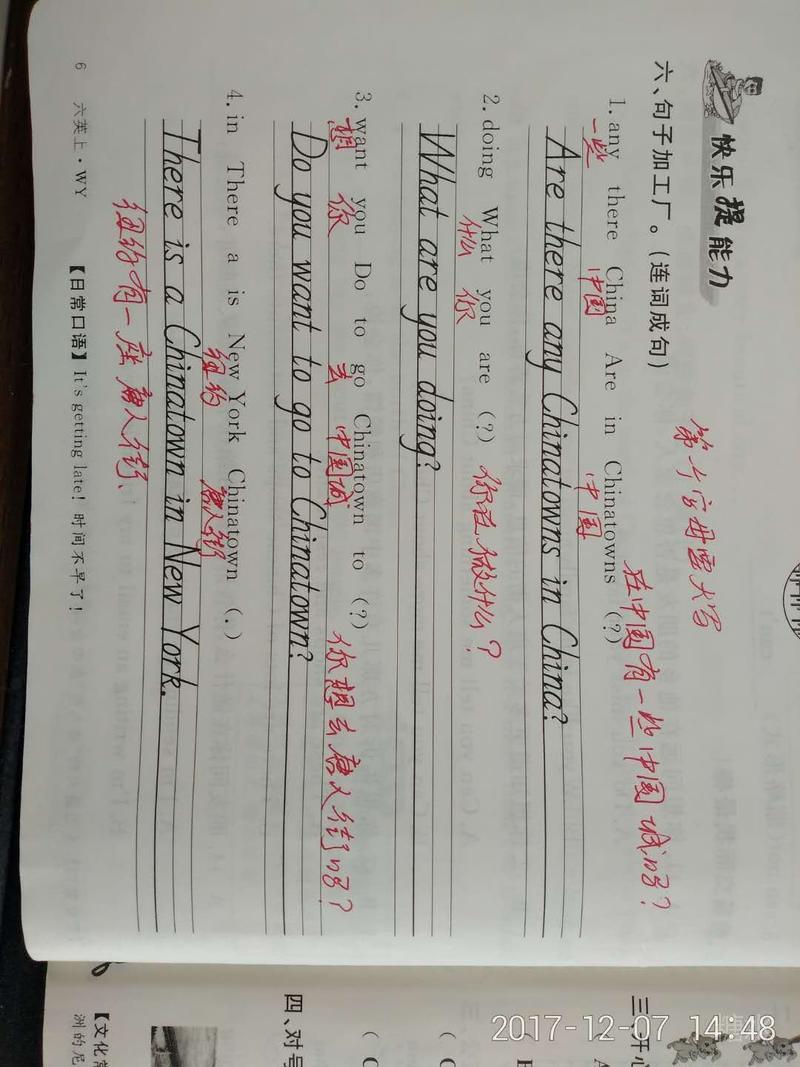 快乐提能力
六、句子加工厂。(连词成句)
第一个字母要大写
1. any there China Are in Chinatowns (?)
一些 中国 中国
在中国有一些中国城吗?
Are there any Chinatowns in China?
2. doing What you are (?)
什么 你
你在做什么?
What are you doing?
3. want you Do to go Chinatown to (?)
想 你 去 中国城
你想去唐人街吗?
Do you want to go to Chinatown?
4. in There a is New York Chinatown (.)
纽约 唐人街
There is a Chinatown in New York.
纽约有一座唐人街、
6 六英上·WY 【日常口语】It's getting late! 时间不早了!
三、开心
四、对号
【文化常
洲的尼
2017-12-07 14:48